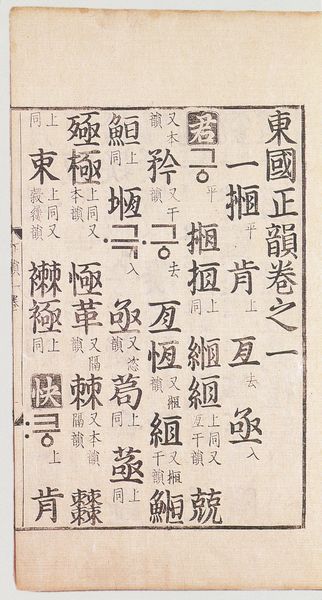 東國正韻卷之一
一揯平肯上亙去亟入
君긍平揯搄上同緪絚上同又亙干韻兢
又本韻矜又干韻·긍去亙恆又揯韻絚又揯干韻䱍
䱭上同堩·극入亟又恣韻茍上同上同
殛極上同又本韻革又隔韻棘又本韻
上同襋上同快:킁上肯